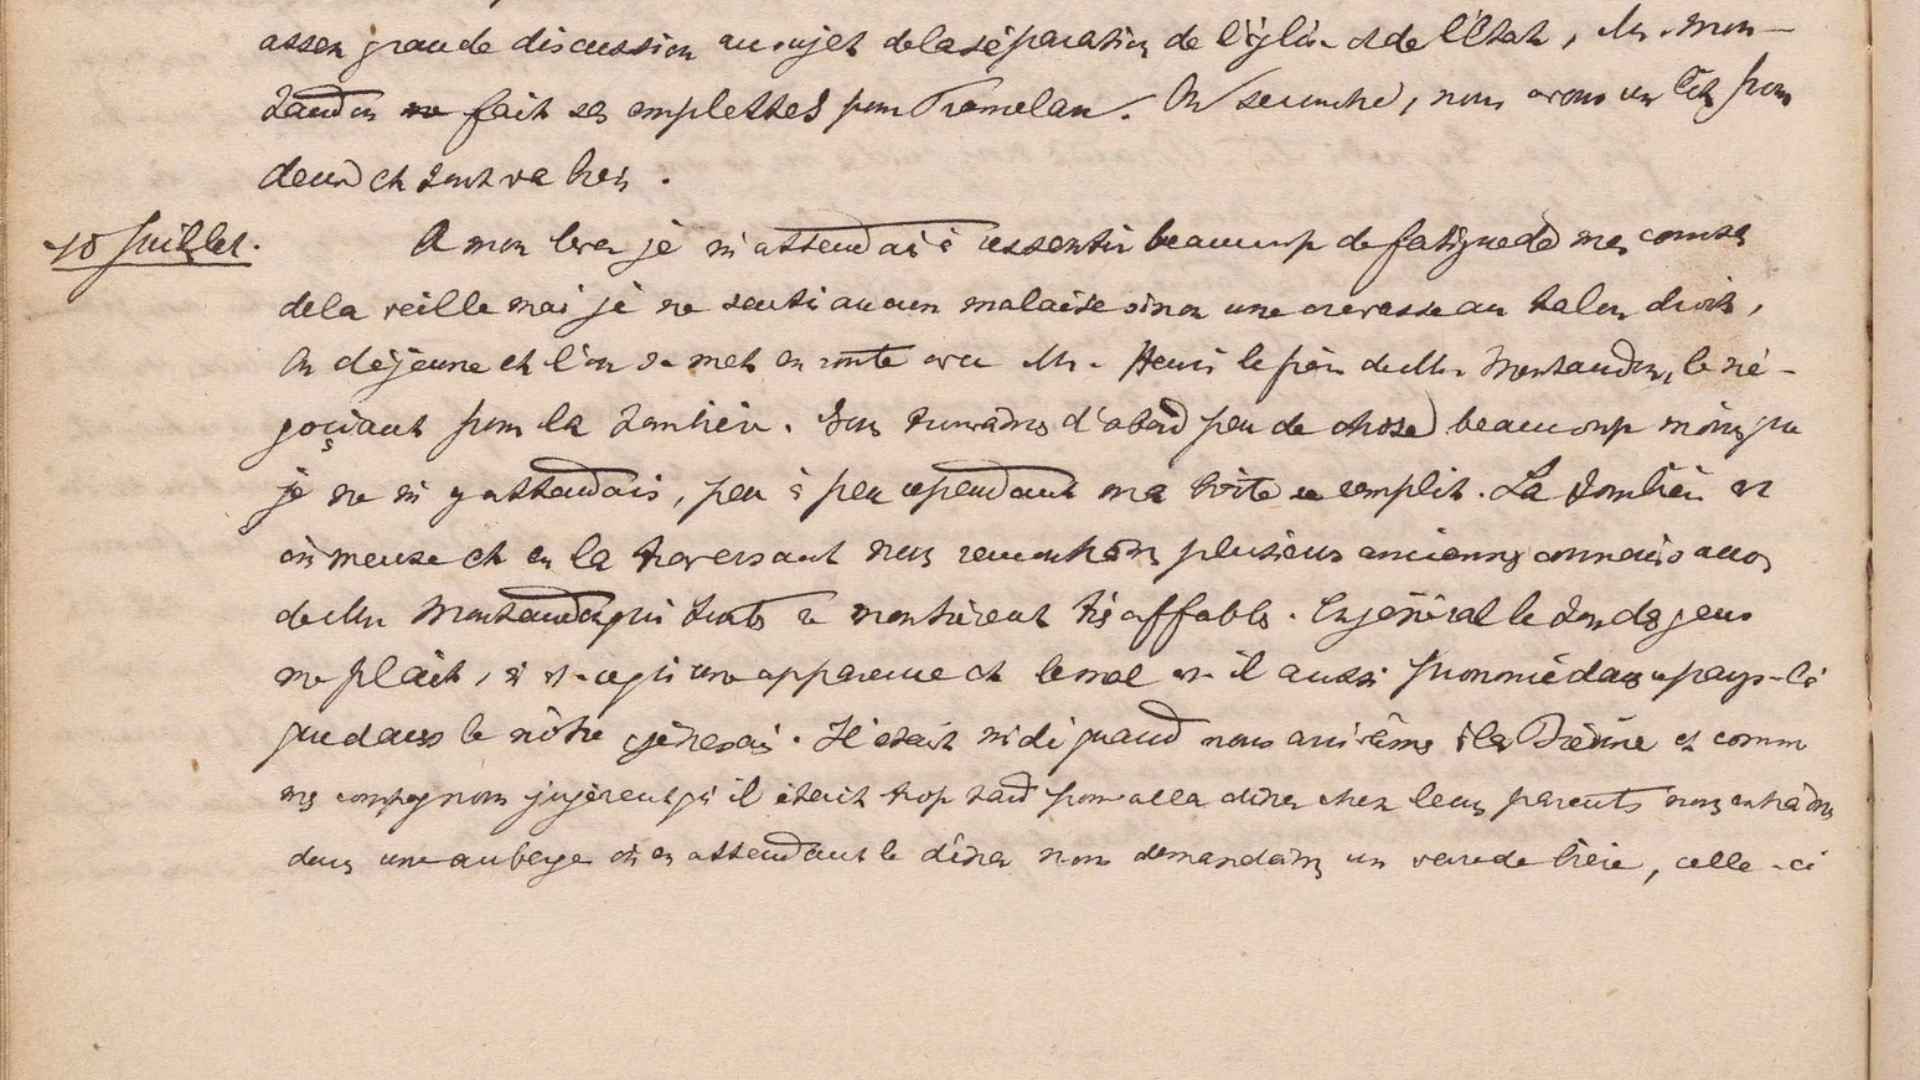 assez grande discussion au sujet de la séparation de l'église et de l'Etat, Mr. Mon-
tandon fait ses emplettes pour Tramelan. On se couche, nous avons un lit pour
deux et tout va bien.
10 Juillet.
A mon lever je m'attendais à ressentir beaucoup de fatigue de mes courses
de la veille mais je ne senti aucun malaise sinon une crevasse au talon droit,
On déjeune et l'on se met en route avec Mr. Henri le père de Mr Montandon, le né-
goçiant pour la Tombien. Nous trouvâmes d'abord peu de chose beaucoup moins que
je ne m'y attendais, peu à peu cependant ma boîte se remplit. La est
immense et en la traversant nous rencontrons plusieurs anciennes connaissances
de Mr Montandon qui toutes se montrèrent très affables. En général le ton des gens
me plait, si est-ce qu'une apparence et le mal est-il aussi prononcé dans ce pays-là
que dans le nôtre je ne sai. Il était midi quand nous arrivâmes à la et comme
mes compagnons jugèrent qu'il était trop tard pour aller diner chez leurs parents nous entrâmes
dans une auberge et en attendant le dîner nous demandâmes un verre de bière, celle-ci